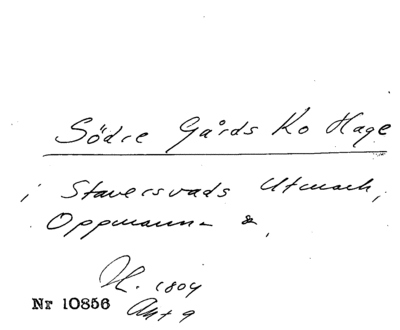 Södre Gårds Ko Hage
i Staversvads Utmark,
Oppmanna
H. 1804
Nr 10856
Akt 9